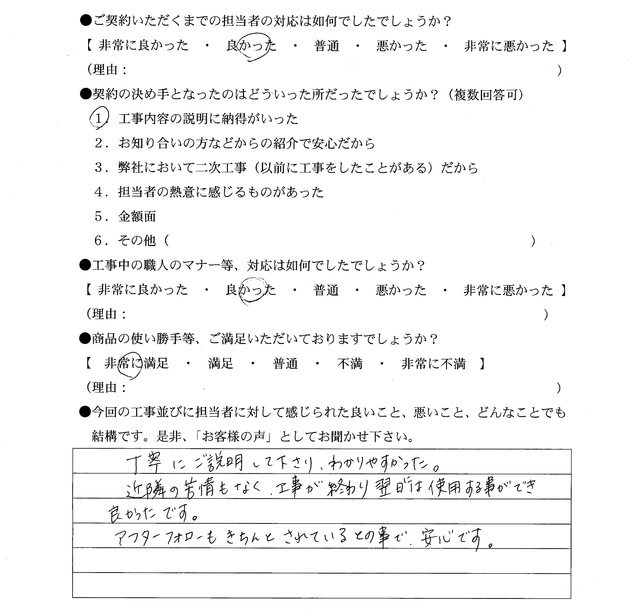 ●ご契約いただくまでの担当者の対応は如何でしたでしょうか？
【 非常に良かった ・ 良かった ・ 普通 ・ 悪かった ・ 非常に悪かった 】
（理由： ）
●契約の決め手となったのはどういった所だったでしょうか？（複数回答可）
1．工事内容の説明に納得がいった
2．お知り合いの方などからの紹介で安心だから
3．弊社において二次工事（以前に工事をしたことがある）だから
4．担当者の熱意に感じるものがあった
5．金額面
6．その他（ ）
●工事中の職人のマナー等、対応は如何でしたでしょうか？
【 非常に良かった ・ 良かった ・ 普通 ・ 悪かった ・ 非常に悪かった 】
（理由： ）
●商品の使い勝手等、ご満足いただいておりますでしょうか？
【 非常に満足 ・ 満足 ・ 普通 ・ 不満 ・ 非常に不満 】
（理由： ）
●今回の工事並びに担当者に対して感じられた良いこと、悪いこと、どんなことでも
結構です。是非、「お客様の声」としてお聞かせ下さい。
丁寧にご説明して下さり、わかりやすかった。
近隣の苦情もなく、工事が終わり翌日は使用する事ができ
良かったです。
アフターフォローもきちんとされているとの事で、安心です。